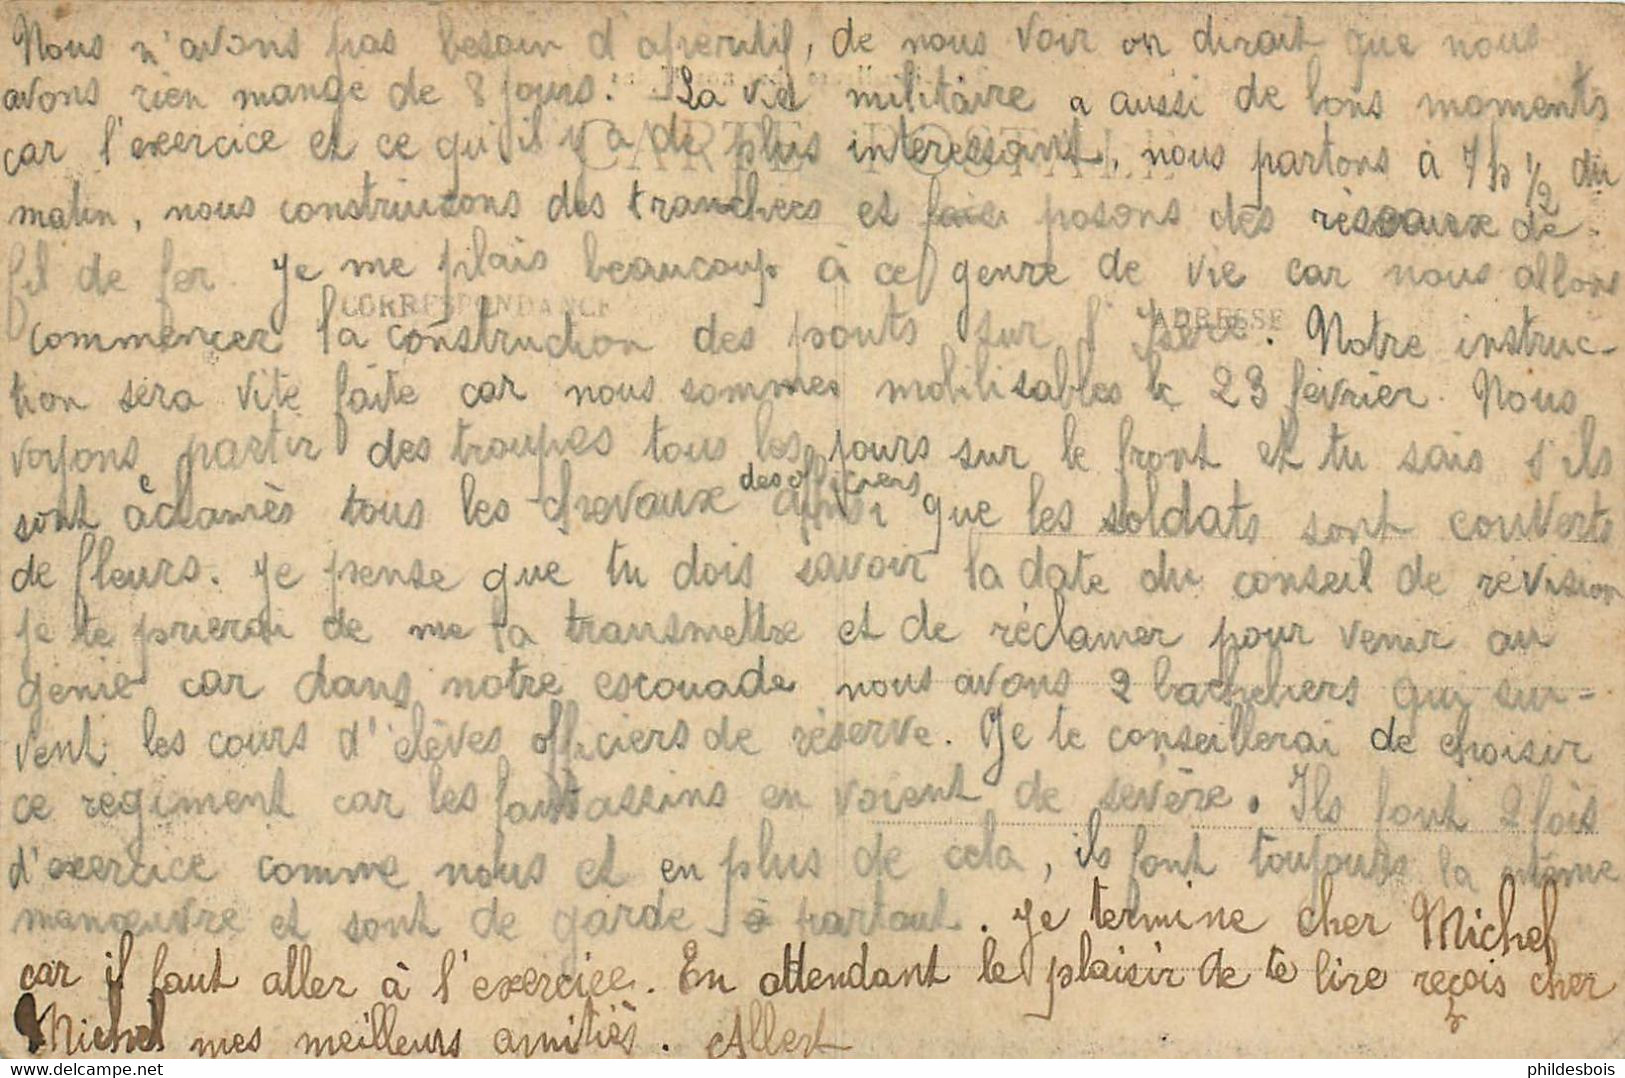 Nous n'avons pas besoin d'apéritif, de nous voir on dirait que nous
avons rien mangé de 8 jours. La vie militaire a aussi de bons moments
car l'exercice et ce qu'il y a de plus interessant, nous partons à 7h 1/2 du
matin, nous construisons des tranchées et posons des réseaux de
fil de fer. Je me plais beaucoup à ce genre de vie car nous allons
commencer la construction des ponts sur l'Isère. Notre instruc-
tion sera vite faite car nous sommes mobilisables le 23 février. Nous
voyons partir des troupes tous les jours sur le front et tu sais s'ils
sont acclamés tous les chevaux des officiers ainsi que les soldats sont couverts
de fleurs. Je pense que tu dois savoir la date du conseil de révision
je te prierai de me la transmettre et de réclamer pour venir au
génie car dans notre escouade nous avons 2 bacheliers qui sui-
vent les cours d'élèves officiers de réserve. Je te conseillerai de choisir
ce regiment car les fantassins en voient de sévère. Ils font 2 fois
d'exercice comme nous et en plus de cela, ils font toujours la même
manœuvre et sont de garde à partout. Je termine cher Michel
car il faut aller à l'exercice. En attendant le plaisir de te lire reçois cher
Michel mes meilleurs amitiés. Albert
CARTE POSTALE
CORRESPONDANCE
ADRESSE
phildesbois